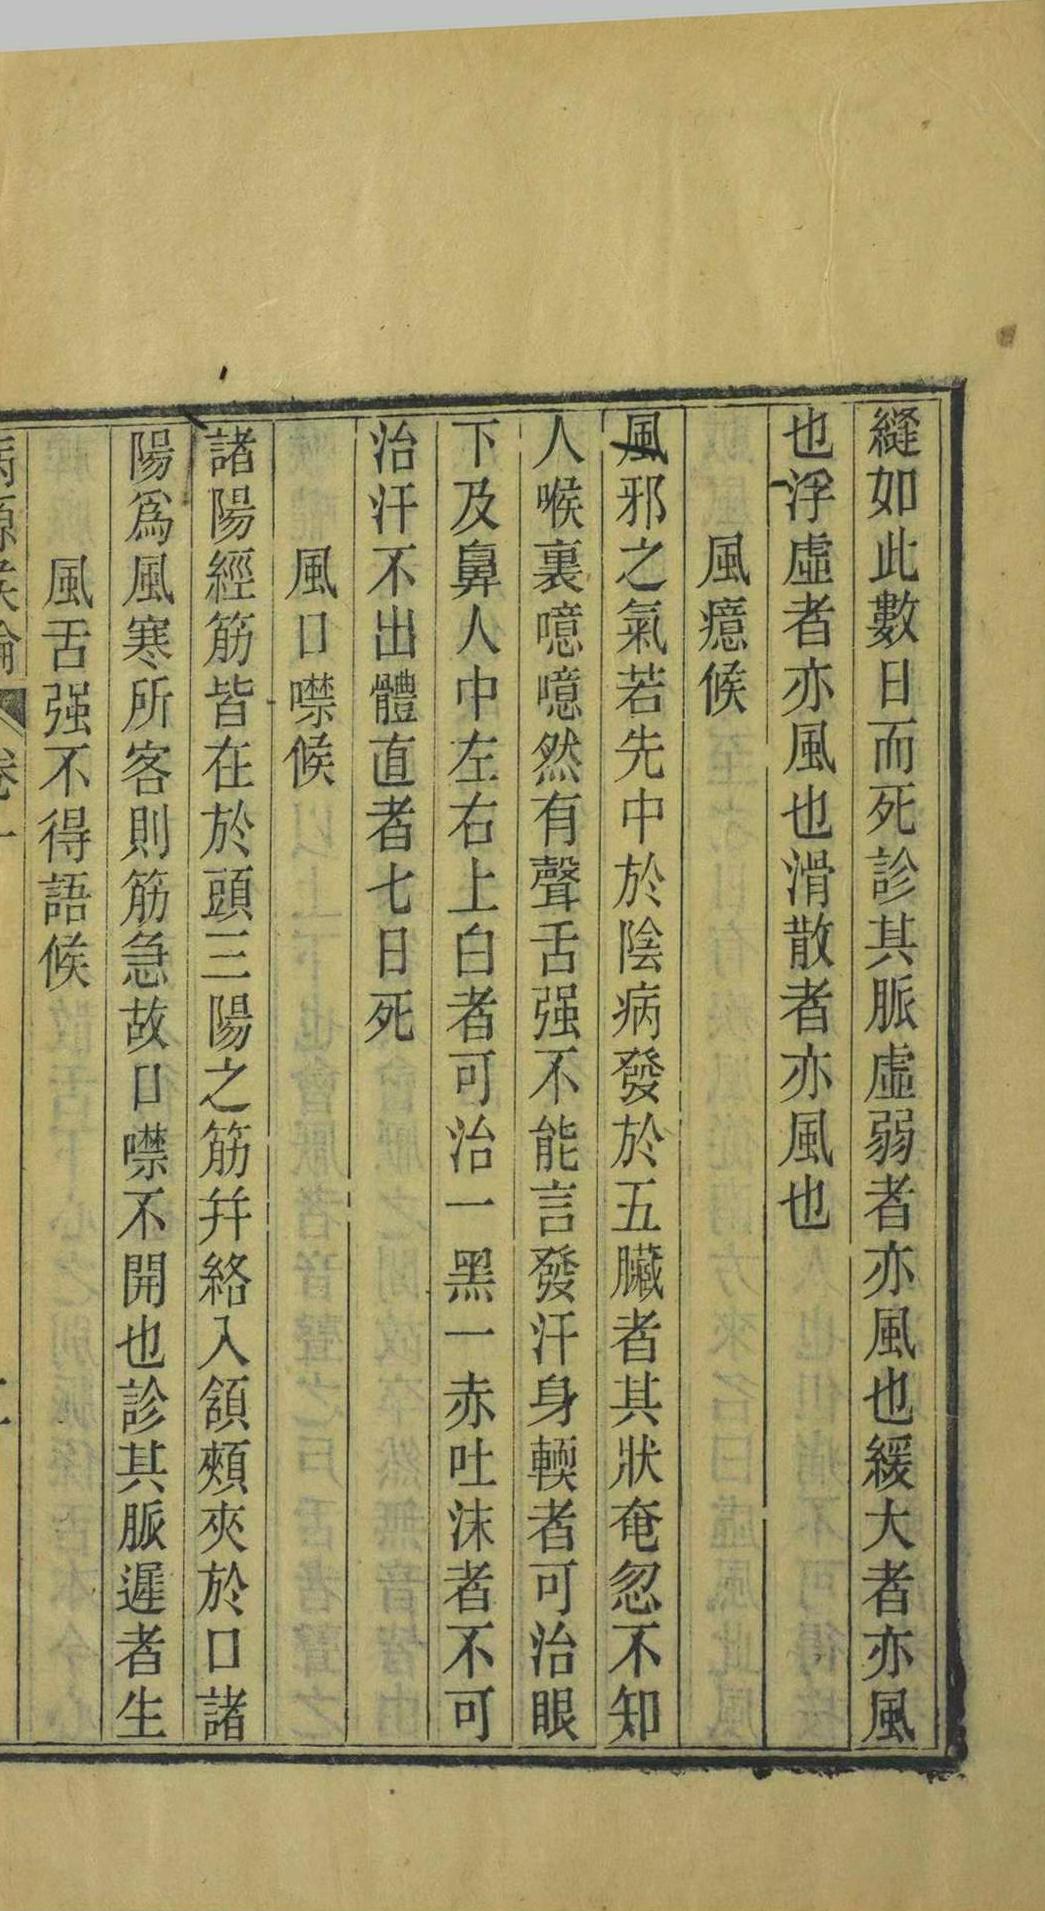 縫如此數日而死診其脈虛弱者亦風也緩大者亦風
也浮虛者亦風也滑散者亦風也
風癔候
風邪之氣若先中於陰病發於五臟者其狀奄忽不知
人喉裏噫噫然有聲舌强不能言發汗身輭者可治眼
下及鼻人中左右上白者可治一黑一赤吐沫者不可
治汗不出體直者七日死
風口噤候
諸陽經筋皆在於頭三陽之筋幷絡入頷頰夾於口諸
陽爲風寒所客則筋急故口噤不開也診其脈遲者生
風舌强不得語候
病源候論 卷一